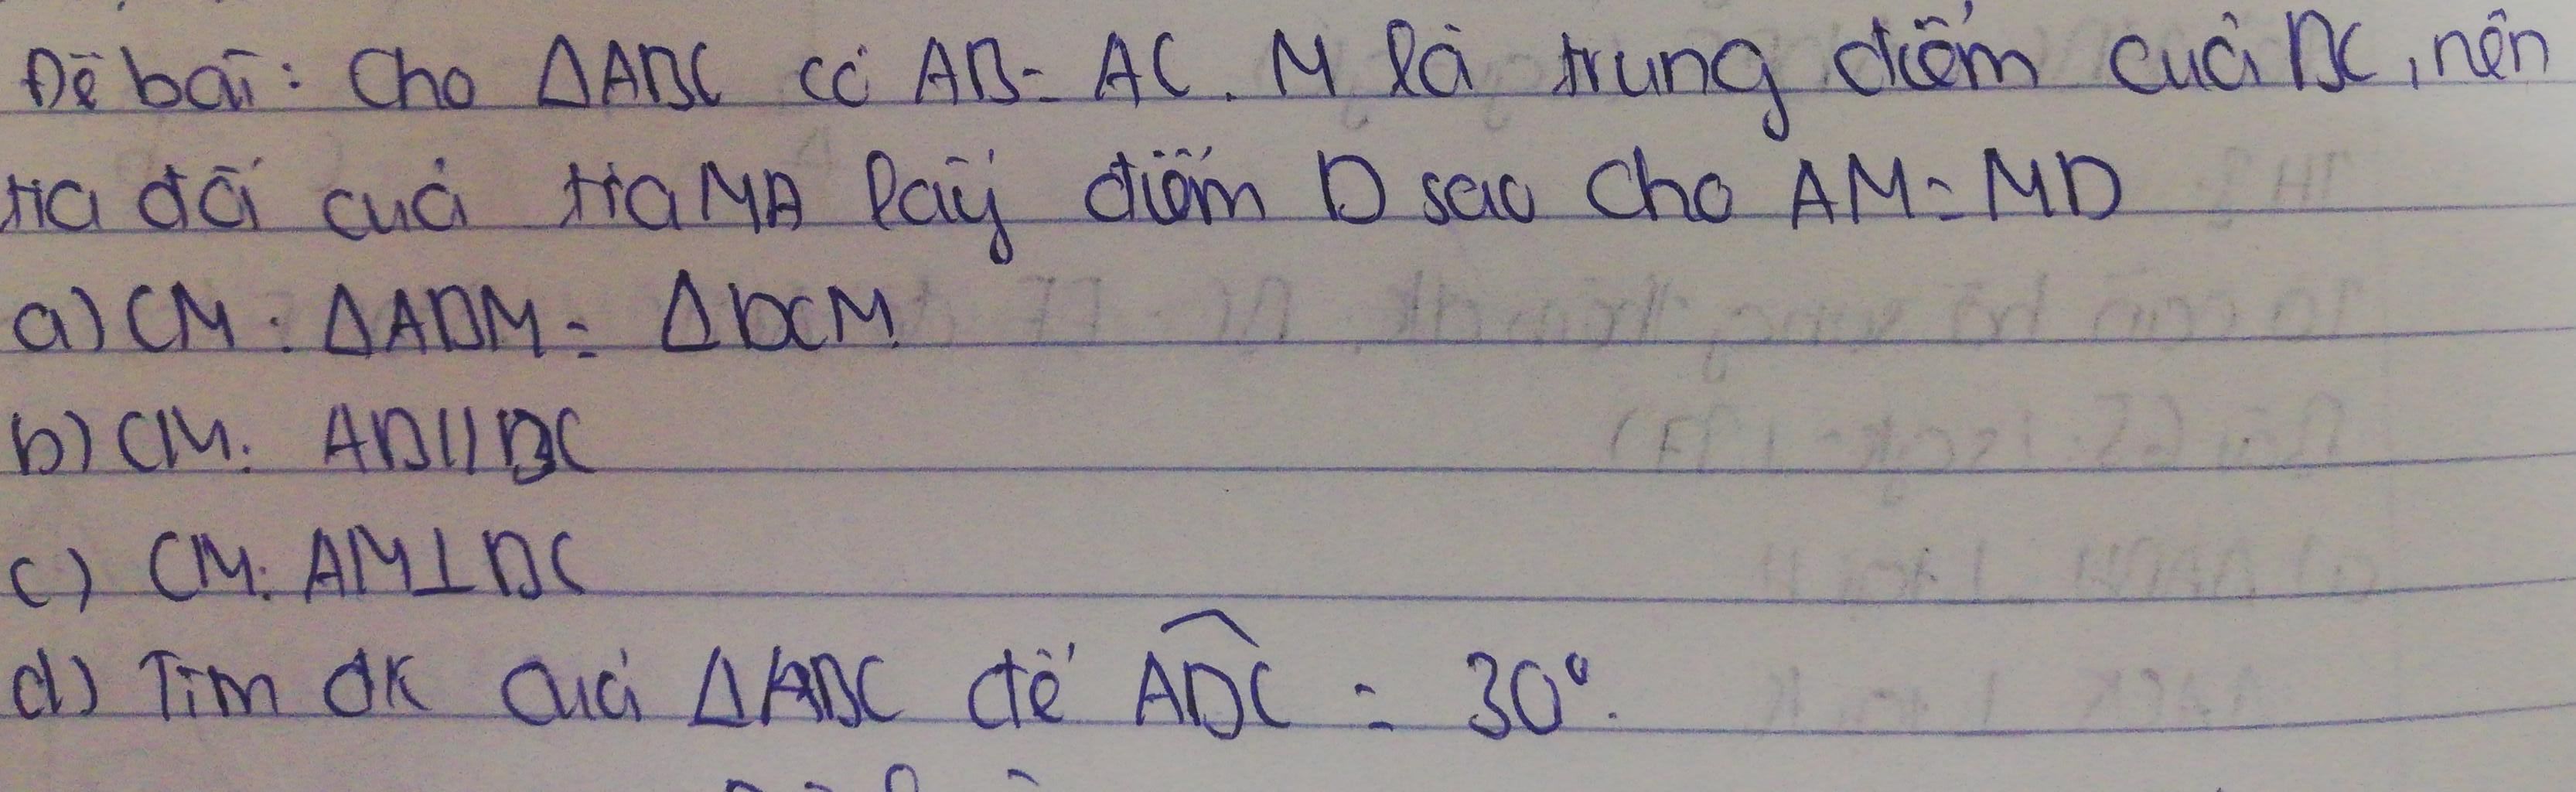 Đề bài: Cho ΔABC có AB = AC. M là trung điểm của BC, nên
tia đối của tia MA lấy điểm D sao cho AM = MD
a) CM: ΔABM = ΔDCM.
b) CM: AB // DC
c) CM: AM ⊥ BC
d) Tìm đk của ΔABC để \widehat{ADC} = 30°.